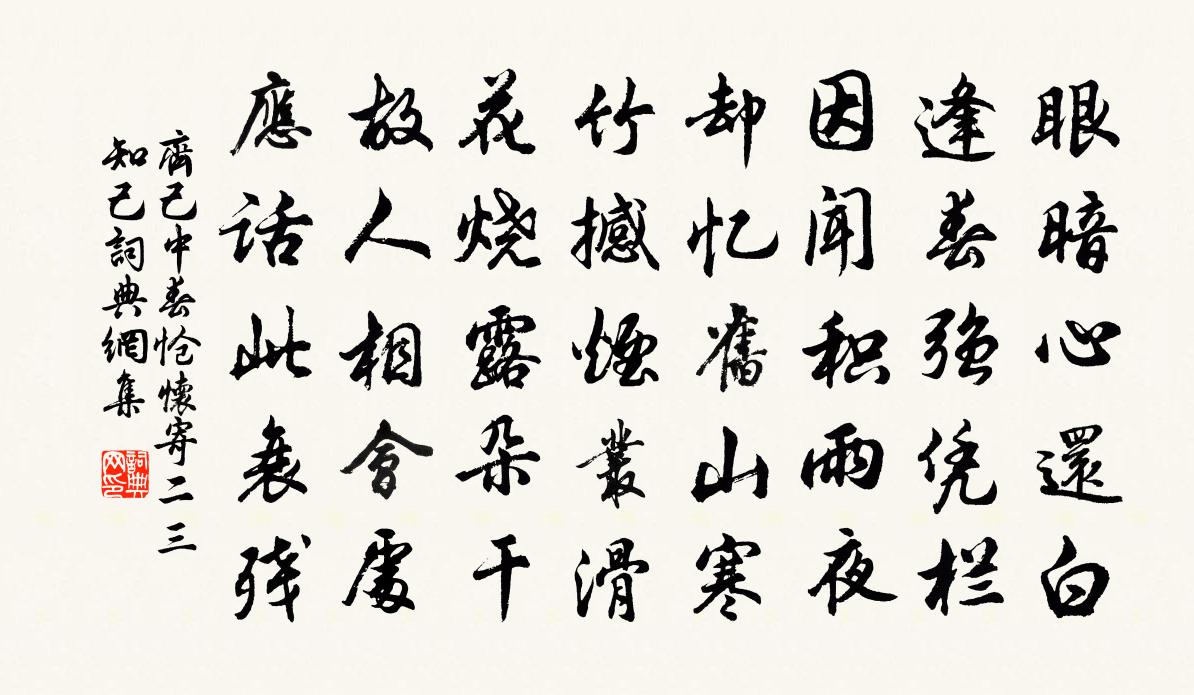 眼暗心還白
逢春强凭栏
因闻积雨夜
却忆舊山寒
竹撼煙叢滑
花烧露朵干
故人相會處
應话此衰残
齊己中春怆懷寄二三
知己詞典網集
詞典网印